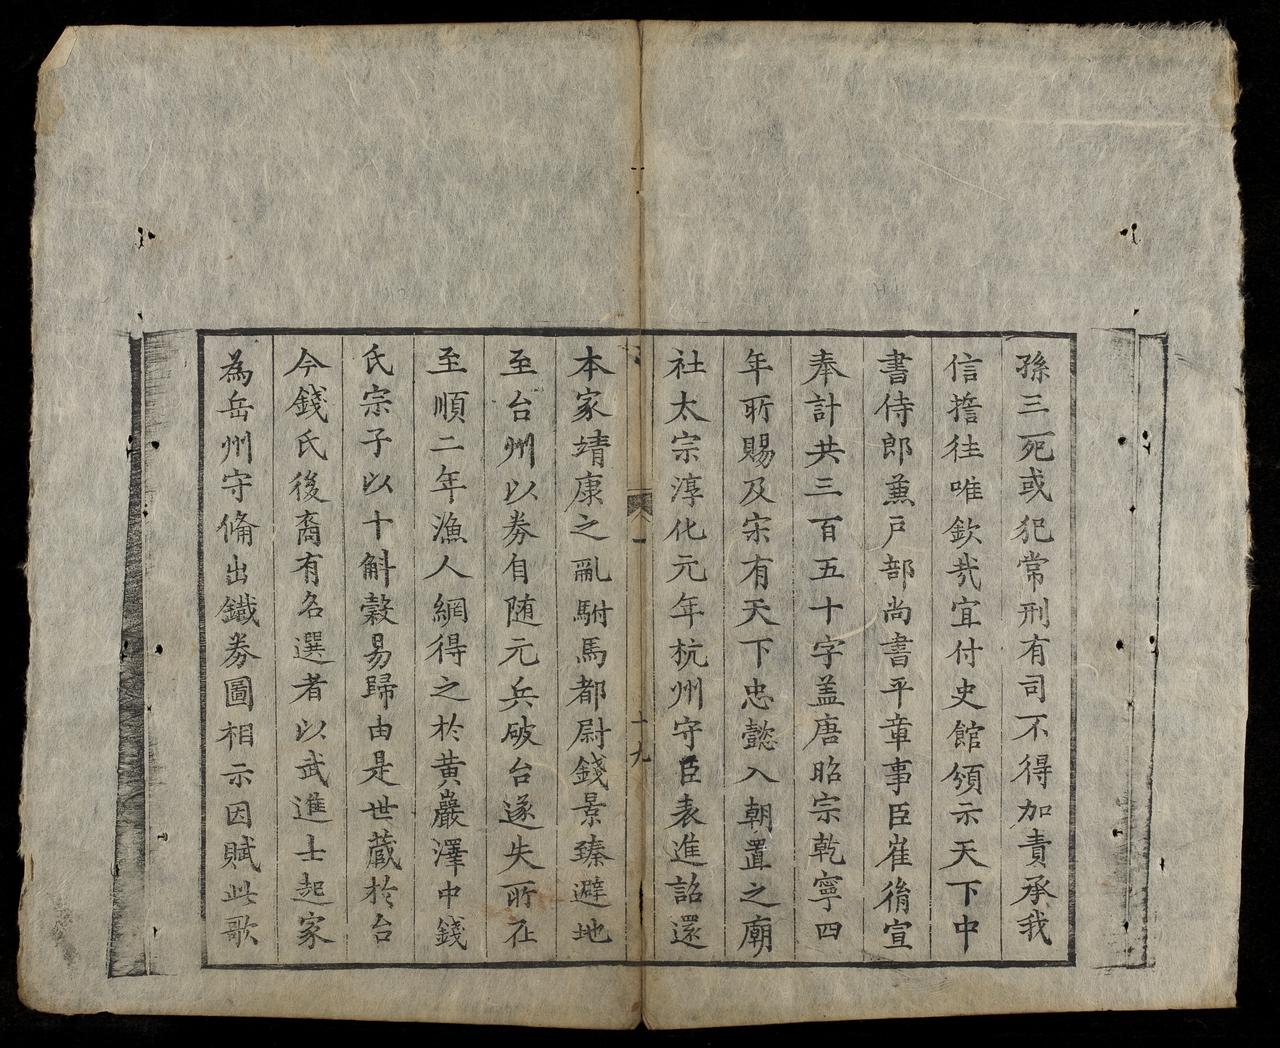 孫三死或犯常刑有司不得加責承我
信擔徃唯欽㢤宜付史館頒示天下中
書侍郎兼戶部尚書平章事臣崔胤宣
奉計共三百五十字盖唐昭宗乾寧四
年所賜及宋有天下忠懿入朝置之廟
社太宗淳化元年杭州守臣表進詔還
一
十九
本家靖康之亂駙馬都尉錢景臻避地
至台州以劵自随元兵破台遂失所在
至順二年漁人網得之於黄巖澤中錢
氏宗子以十斛穀易歸由是世蔵於台
今錢氏後裔有名選者以武進士起家
為岳州守備出鐵劵圖相示因賦此歌